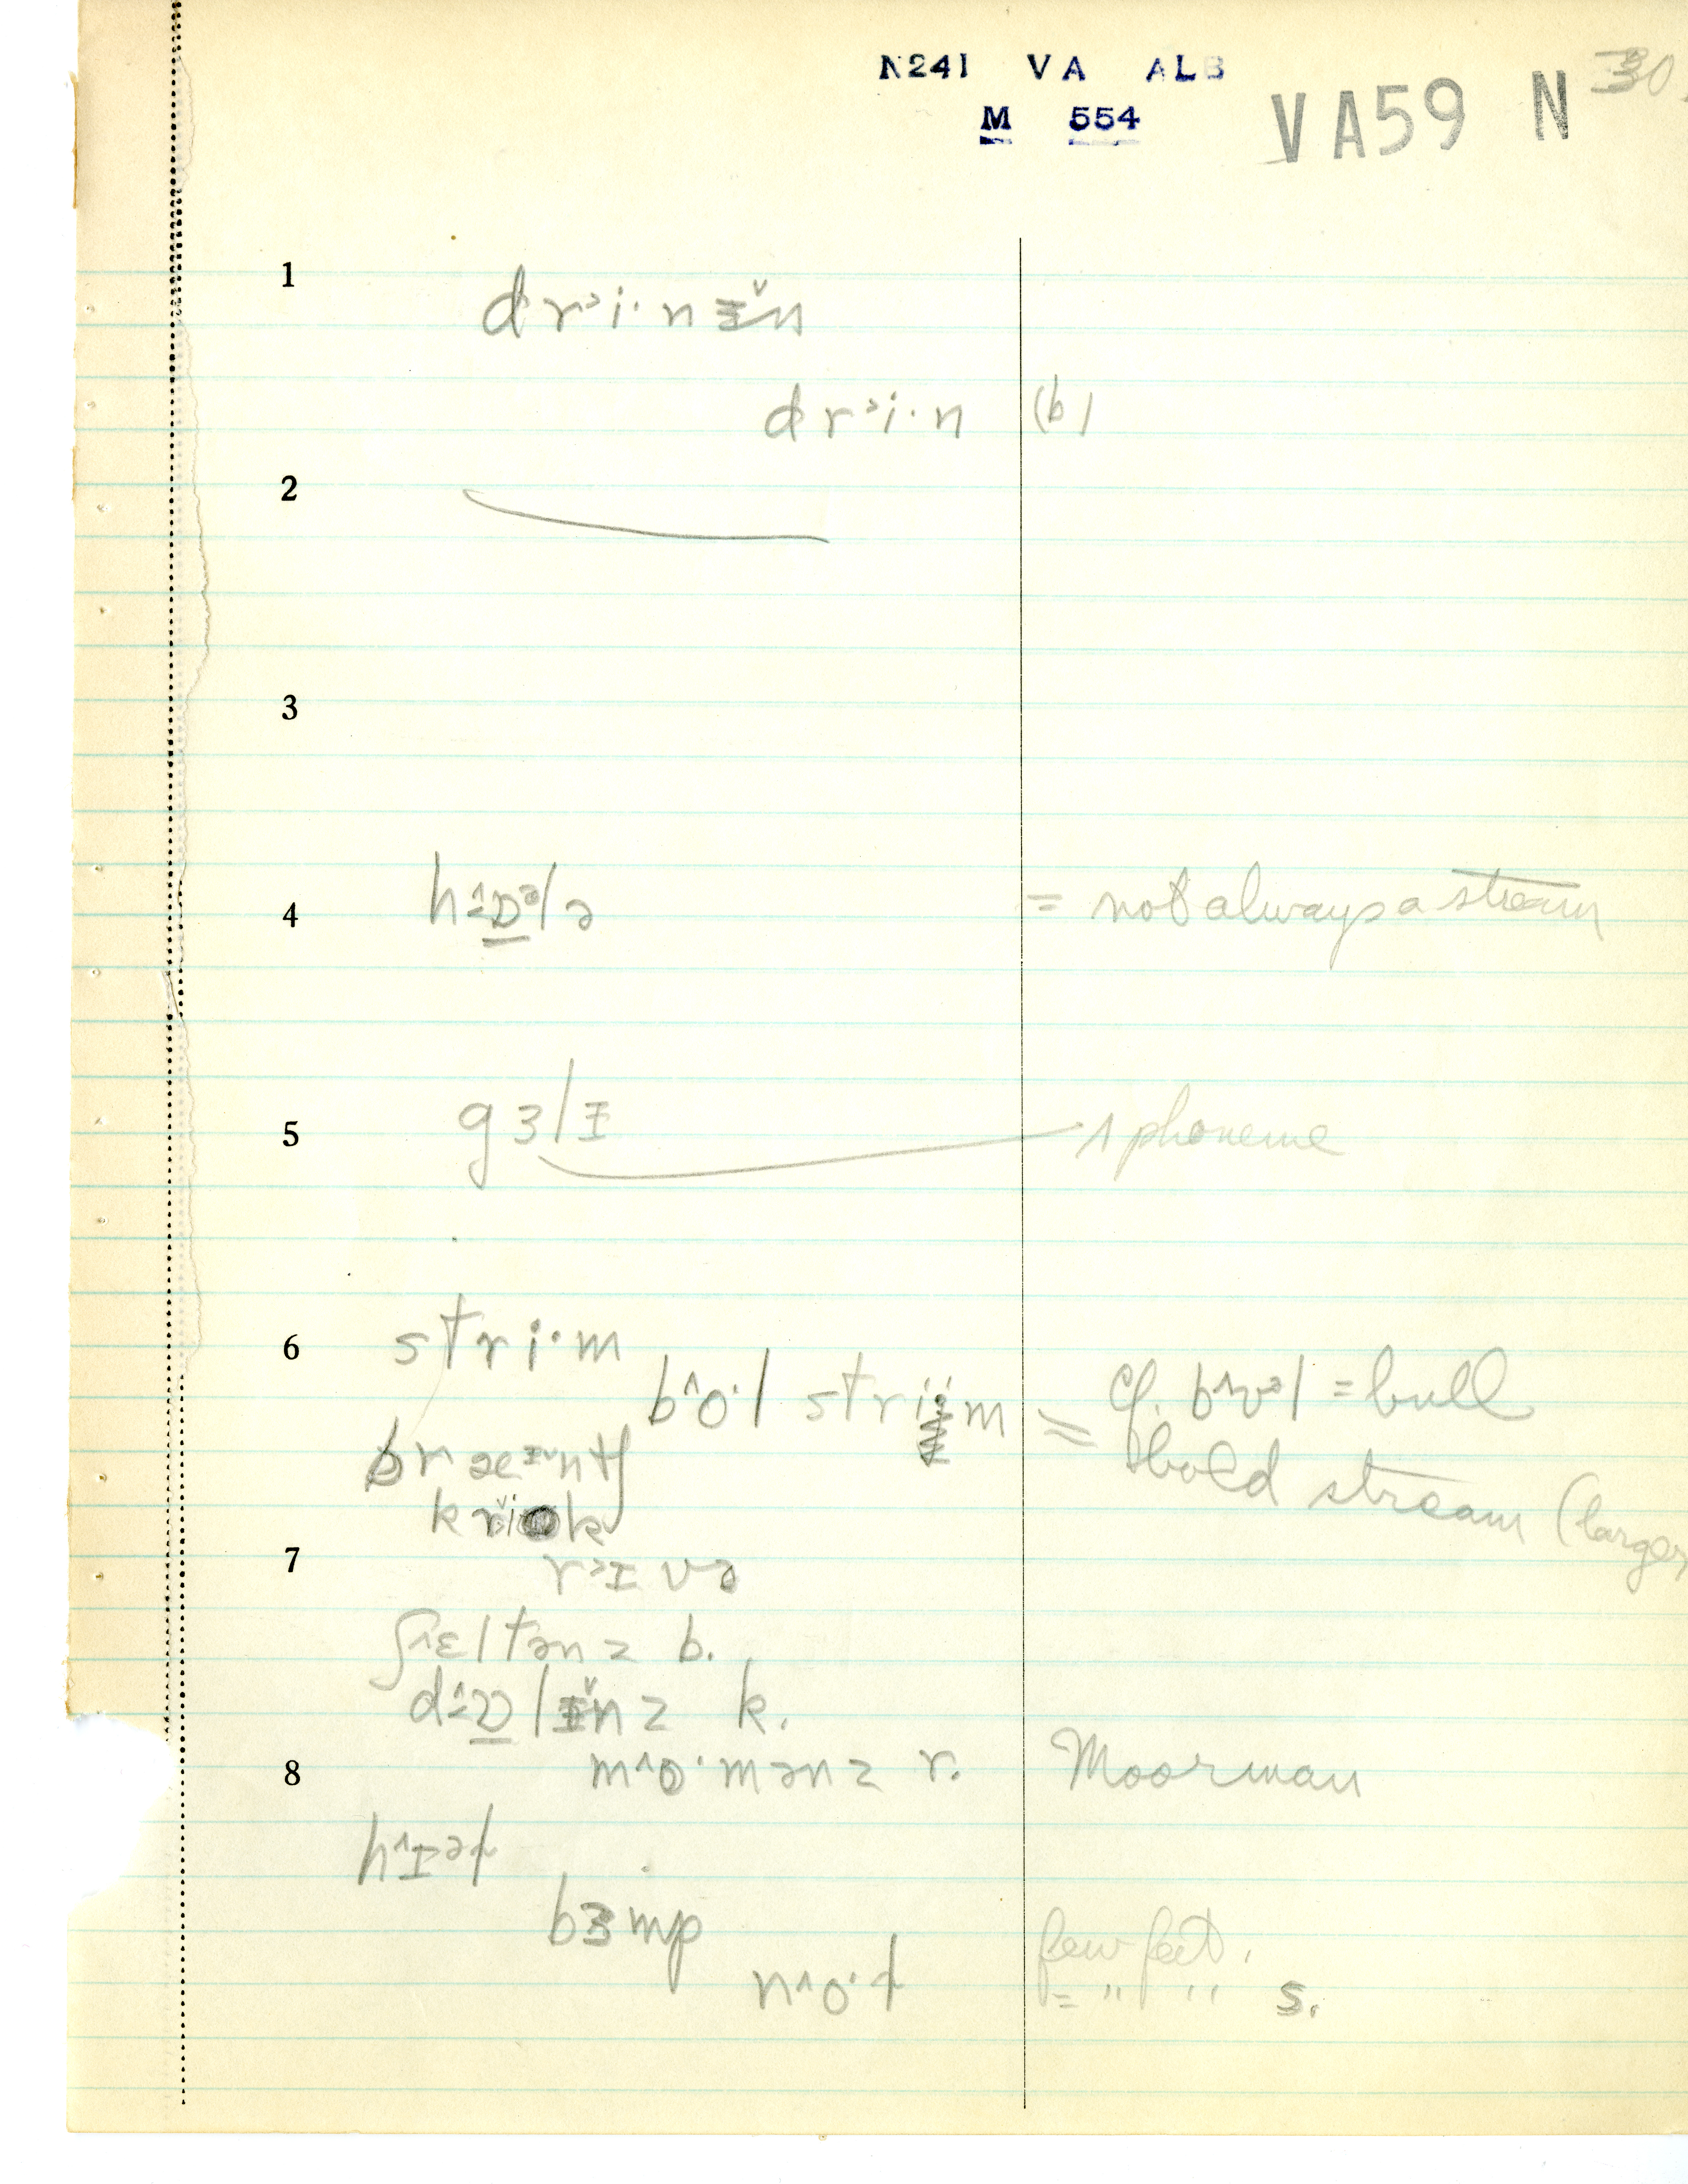 N241 VA ALB
M 554
VA59 N
30
1
dr˃i·nɪ̆n
dr˃i·n (b)
2
3
4 hɒᵊlə = not always a stream
5 gɜlɪ 1 phoneme
6 stri·m
b^o·l strim = cf. b^ʊᵊl = bull
bold stream (larger
bræᶦntʃ
krik
7 r˃ɪvə
ʃ^ɛltənz b.
d^ɒlɪ̆nz k.
8 m^o·mənz r. Moorman
h^ɪᵊɫ
bɜmp few feet.
n^o·ɫ = " " s.